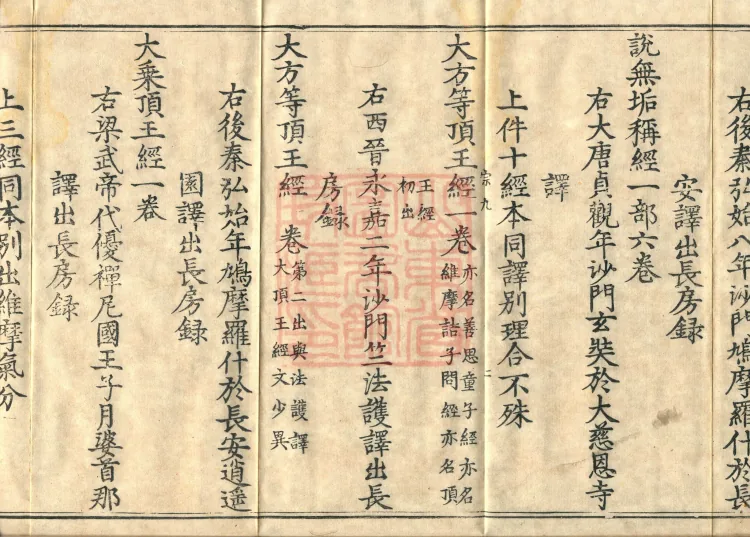 右後秦弘始八年沙門鳩摩羅什於長
安譯出長房録
說無垢稱經一部六卷
右大唐貞觀年沙門玄奘於大慈恩寺
譯
上件十經本同譯別理合不殊
宗九
二
大方等頂王經一卷
亦名善思童子經亦名
維摩詰子問經亦名頂
王經
初出
右西晉永嘉二年沙門竺法護譯出長
房録
大方等頂王經 卷
第二出與法護譯
大頂王經文少異
右後秦弘始年鳩摩羅什於長安逍遥
園譯出長房録
大乗頂王經一卷
右梁武帝代優禪尼國王子月婆首那
譯出長房録
上三經同本別出維摩氣分